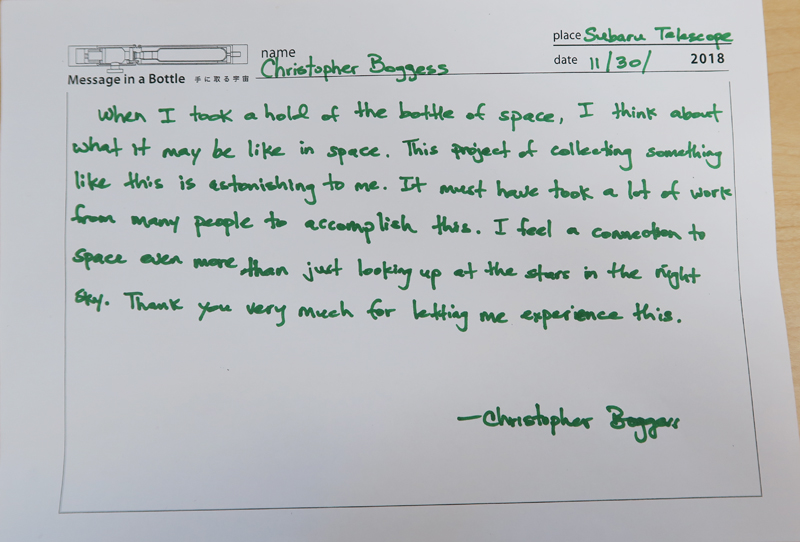 place Subaru Telescope
name Christopher Boggess
date 11/30/ 2018
Message in a Bottle 手に取る宇宙
When I took a hold of the bottle of space, I think about
what it may be like in space. This project of collecting something
like this is astonishing to me. It must have took a lot of work
from many people to accomplish this. I feel a connection to
space even more than just looking up at the stars in the night
sky. Thank you very much for letting me experience this.
—Christopher Boggess